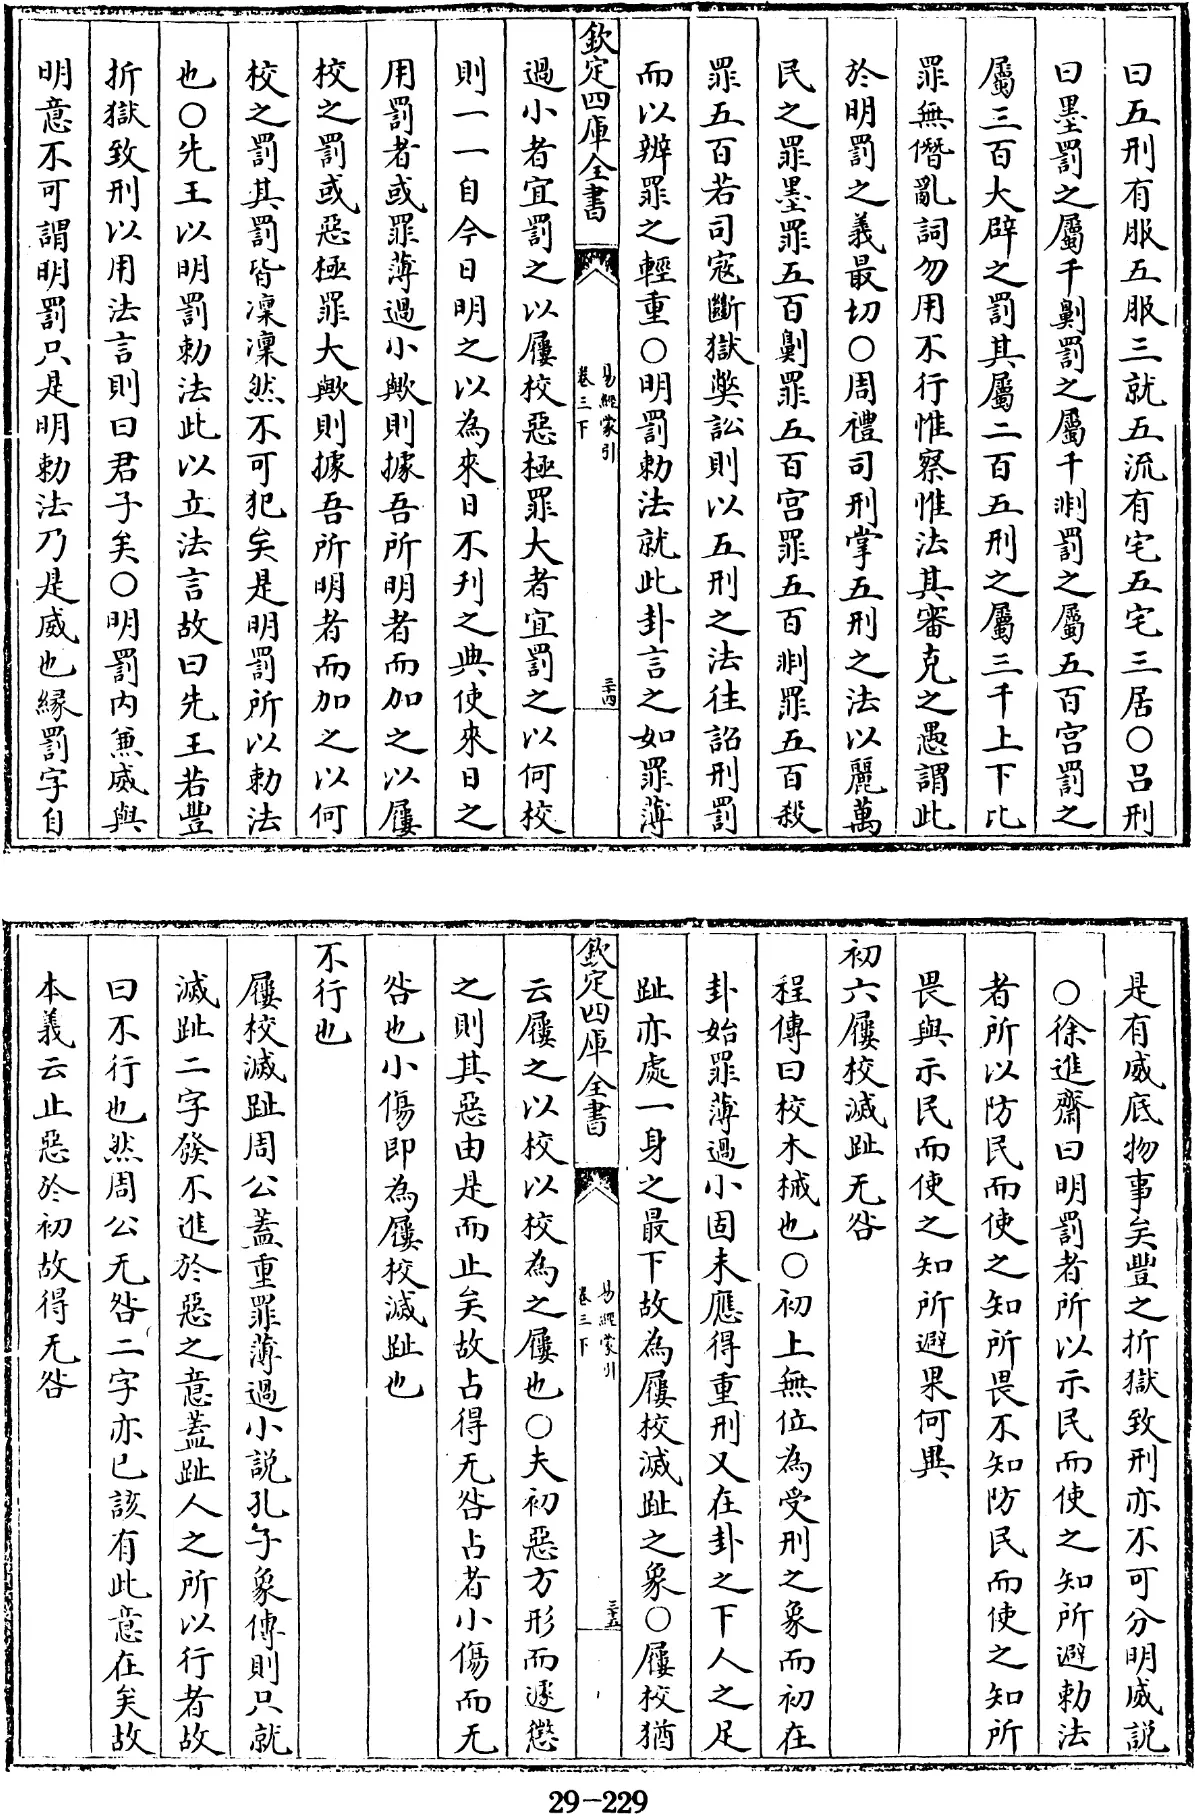 曰五刑有服五服三就五流有宅五宅三居○吕刑
曰墨罰之屬千劓罰之屬千剕罰之屬五百宫罰之
屬三百大辟之罰其屬二百五刑之屬三千上下比
罪無僭亂詞勿用不行惟察惟法其審克之愚謂此
於明罰之義最切○周禮司刑掌五刑之法以麗萬
民之罪墨罪五百劓罪五百宫罪五百剕罪五百殺
罪五百若司寇斷獄獘訟則以五刑之法往詔刑罰
而以辨罪之輕重○明罰勅法就此卦言之如罪薄
欽定四庫全書
易經蒙引
卷三下
三十四
過小者宜罰之以屨校惡極罪大者宜罰之以何校
則一一自今日明之以為來日不刋之典使來日之
用罰者或罪薄過小歟則據吾所明者而加之以屨
校之罰或惡極罪大歟則據吾所明者而加之以何
校之罰其罰皆凜凜然不可犯矣是明罰所以勅法
也○先王以明罰勅法此以立法言故曰先王若豐
折獄致刑以用法言則曰君子矣○明罰内兼威與
明意不可謂明罰只是明勅法乃是威也縁罰字自
是有威底物事矣豐之折獄致刑亦不可分明威説
○徐進齋曰明罰者所以示民而使之知所避勅法
者所以防民而使之知所畏不知防民而使之知所
畏與示民而使之知所避果何異
初六屨校滅趾无咎
程傳曰校木械也○初上無位為受刑之象而初在
卦始罪薄過小固未應得重刑又在卦之下人之足
趾亦處一身之最下故為屨校滅趾之象○屨校猶
欽定四庫全書
易經蒙引
卷三下
三十五
云屨之以校以校為之屨也○夫初惡方形而遽懲
之則其惡由是而止矣故占得无咎占者小傷而无
咎也小傷即為屨校滅趾也
不行也
屨校滅趾周公蓋重罪薄過小説孔子象傳則只就
滅趾二字發不進於惡之意蓋趾人之所以行者故
曰不行也然周公无咎二字亦已該有此意在矣故
本義云止惡於初故得无咎
29-229